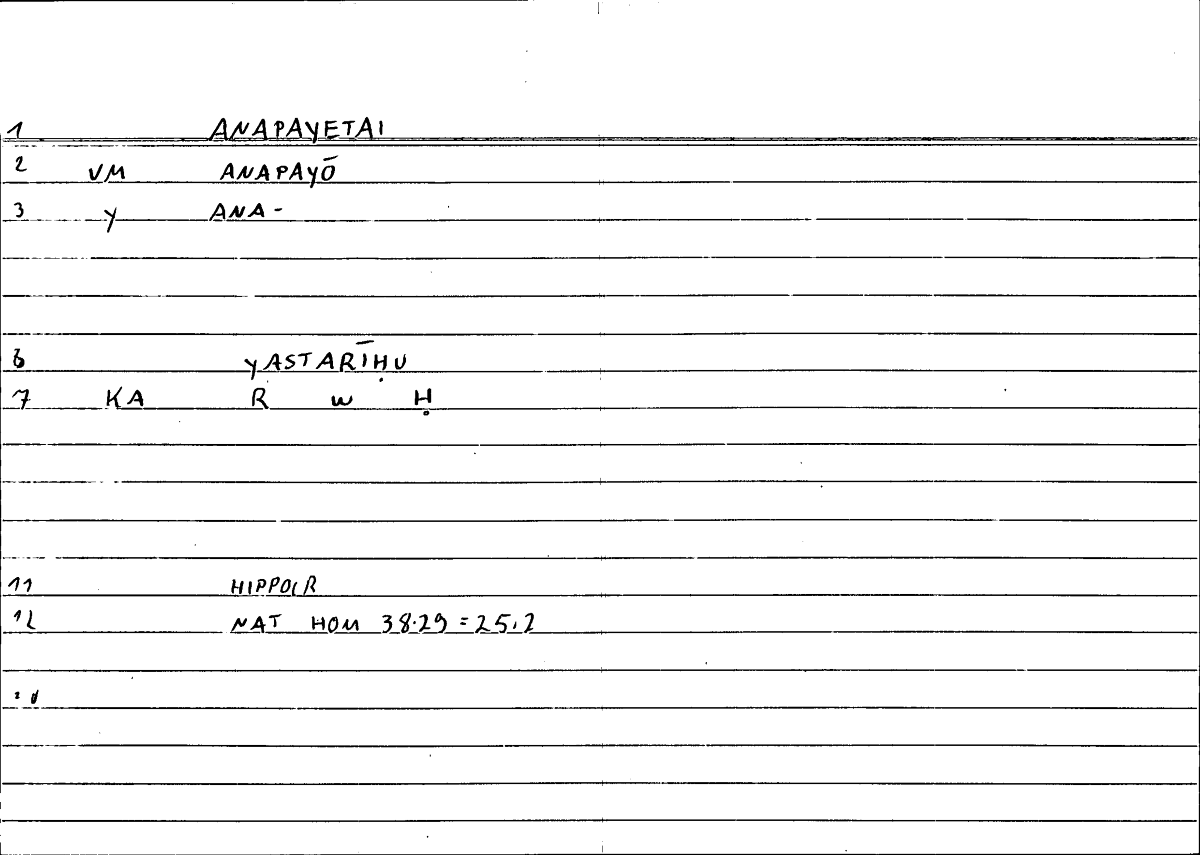 1 ANAPAYETAI
2 VM ANAPAYŌ
3 Y ANA-
6 YASTARĪḤU
7 KA R W Ḥ
11 HIPPOCR
12 NAT HOM 38.29 = 25.2